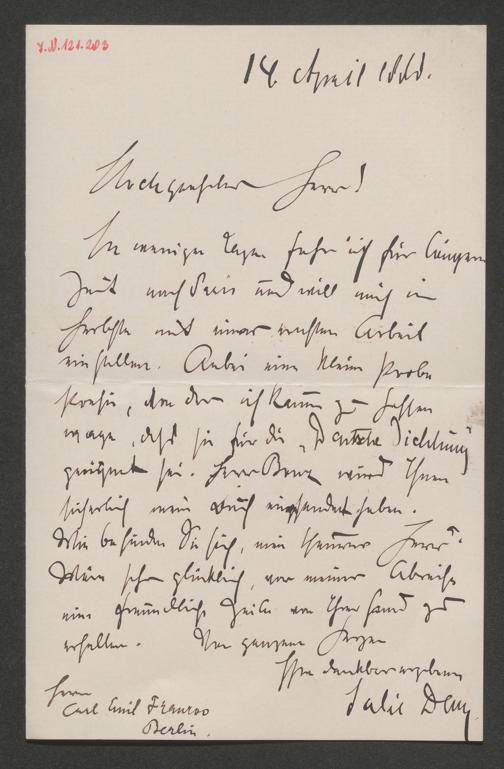 J.N. 121.203
14. April 1888.
Hochgeehrter Herr!
In wenigen Tagen fahr' ich für längere
Zeit nach Paris und will mich im
Herbste mit einer ersten Arbeit
einstellen. Anbei eine kleine Probe
Poesie, von der ich kaum zu hoffen
wage, daß sie für die „Deutsche Dichtung"
geeignet sei. Herr Bonz wird Ihnen
sicherlich mein Buch eingesendet haben.
Wie befinden Sie sich, mein theurer Herr?
Wäre sehr glücklich, vor meiner Abreise
eine freundliche Zeile von Ihrer Hand zu
erhalten. Von ganzem Herzen
Ihr dankbar ergebener
Herrn
Carl Emil Franzos
Berlin.